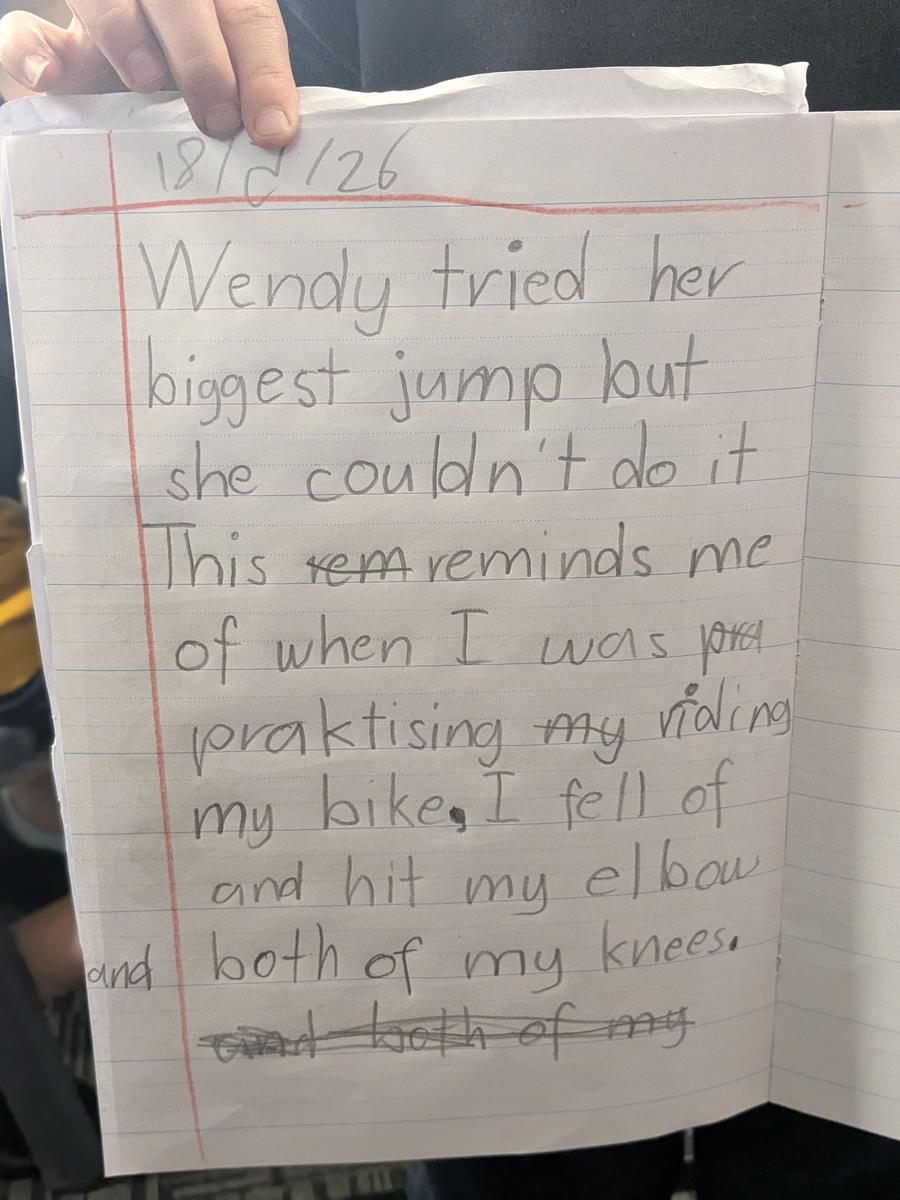 18/2/26
Wendy tried her
biggest jump but
she couldn't do it
This rem reminds me
of when I was pra
praktising my riding
my bike. I fell of
and hit my elbow
and both of my knees.
and both of my